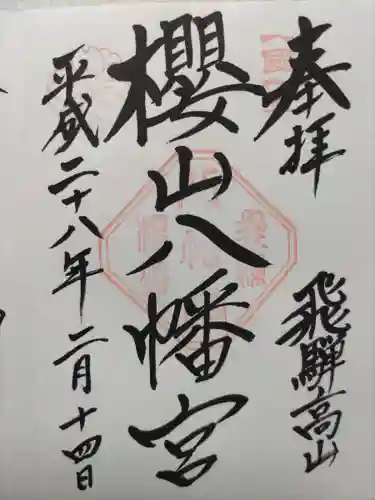 奉拝
飛騨高山
櫻山八幡宮
平成二十八年二月十四日